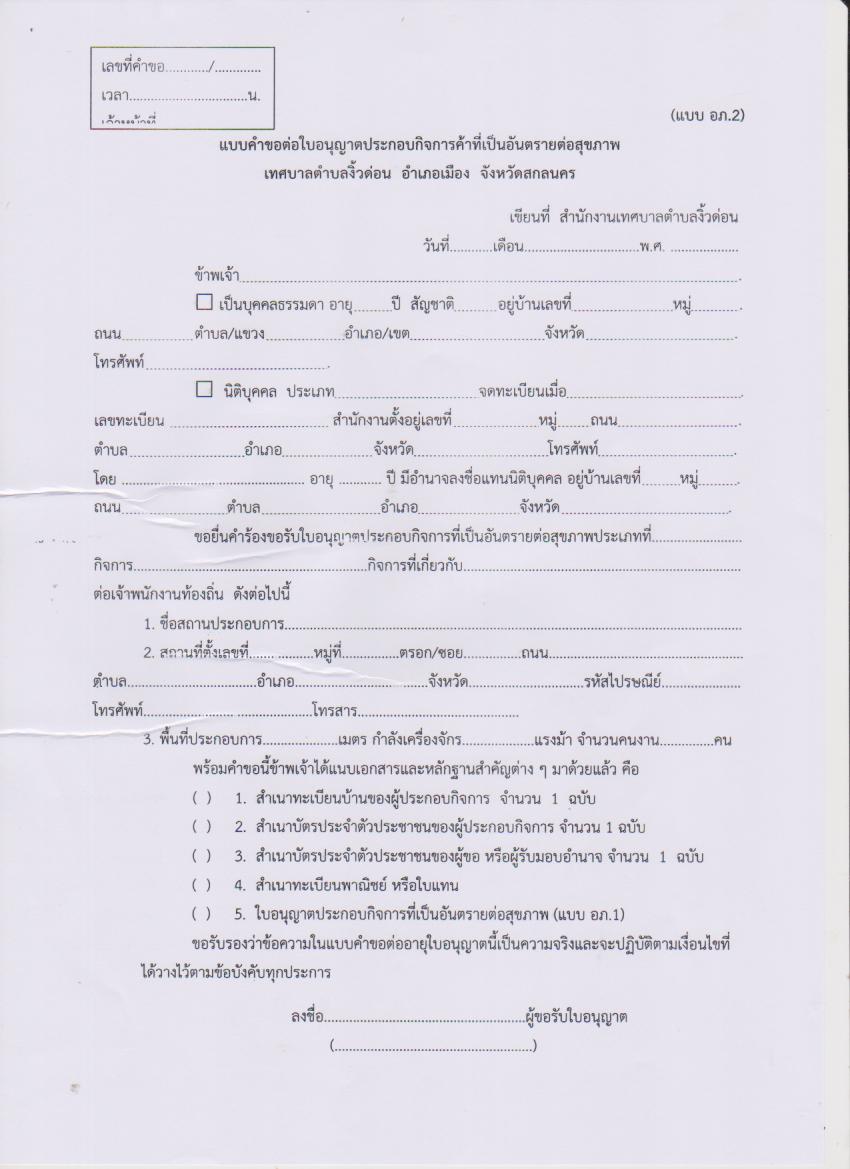 เลขที่คำขอ.........../.............
เวลา...............................น.
เจ้าหน้าที่
(แบบ อภ.2)
แบบคำขอต่อใบอนุญาตประกอบกิจการค้าที่เป็นอันตรายต่อสุขภาพ
เทศบาลตำบลงิ้วด่อน อำเภอเมือง จังหวัดสกลนคร
เขียนที่ สำนักงานเทศบาลตำบลงิ้วด่อน
วันที่...........เดือน................................พ.ศ. ...................
ข้าพเจ้า.....................................................................
☐ เป็นบุคคลธรรมดา อายุ.........ปี สัญชาติ...........อยู่บ้านเลขที่.........................หมู่............
ถนน..................ตำบล/แขวง....................อำเภอ/เขต.................................จังหวัด.....................................
โทรศัพท์..............................................
☐ นิติบุคคล ประเภท...................................จดทะเบียนเมื่อ...........................................
เลขทะเบียน ....................................... สำนักงานตั้งอยู่เลขที่.....................หมู่........ถนน..............................
ตำบล.............................อำเภอ.......................จังหวัด.................................โทรศัพท์..................................
โดย ................................................ อายุ ............ ปี มีอำนาจลงชื่อแทนนิติบุคคล อยู่บ้านเลขที่..........หมู่..........
ถนน..........................ตำบล..............................อำเภอ.........................จังหวัด..........................................
ขอยื่นคำร้องขอรับใบอนุญาตประกอบกิจการที่เป็นอันตรายต่อสุขภาพประเภทที่.........................
กิจการ................................................................กิจการที่เกี่ยวกับ.............................................................................
ต่อเจ้าพนักงานท้องถิ่น ดังต่อไปนี้
1. ชื่อสถานประกอบการ.............................................................................................................................
2. สถานที่ตั้งเลขที่....... ..........หมู่ที่................ตรอก/ซอย................ถนน.....................................................
ตำบล....................................อำเภอ.....................................จังหวัด................................รหัสไปรษณีย์......................
โทรศัพท์......................... .....................โทรสาร.............................................
3. พื้นที่ประกอบการ.....................เมตร กำลังเครื่องจักร....................แรงม้า จำนวนคนงาน...............คน
พร้อมคำขอนี้ข้าพเจ้าได้แนบเอกสารและหลักฐานสำคัญต่าง ๆ มาด้วยแล้ว คือ
( ) 1. สำเนาทะเบียนบ้านของผู้ประกอบกิจการ จำนวน 1 ฉบับ
( ) 2. สำเนาบัตรประจำตัวประชาชนของผู้ประกอบกิจการ จำนวน 1 ฉบับ
( ) 3. สำเนาบัตรประจำตัวประชาชนของผู้ขอ หรือผู้รับมอบอำนาจ จำนวน 1 ฉบับ
( ) 4. สำเนาทะเบียนพาณิชย์ หรือใบแทน
( ) 5. ใบอนุญาตประกอบกิจการที่เป็นอันตรายต่อสุขภาพ (แบบ อภ.1)
ขอรับรองว่าข้อความในแบบคำขอต่ออายุใบอนุญาตนี้เป็นความจริงและจะปฏิบัติตามเงื่อนไขที่
ได้วางไว้ตามข้อบังคับทุกประการ
ลงชื่อ........................................................ผู้ขอรับใบอนุญาต
(.......................................................)